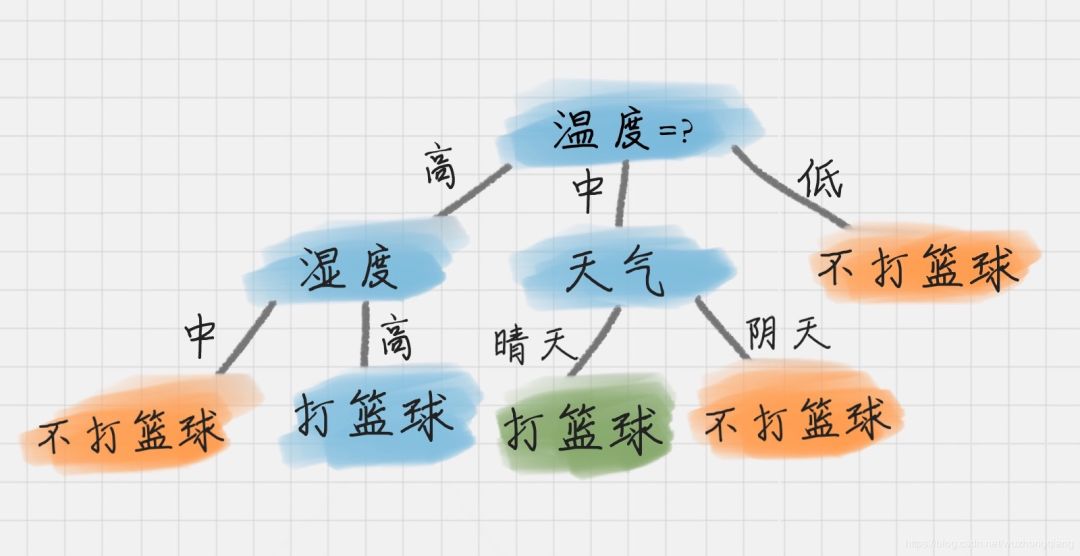 温度=?
高
中
低
湿度
天气
不打篮球
中
高
晴天
阴天
不打篮球
打篮球
打篮球
不打篮球
https://blog.csdn.net/wuzhongqiang